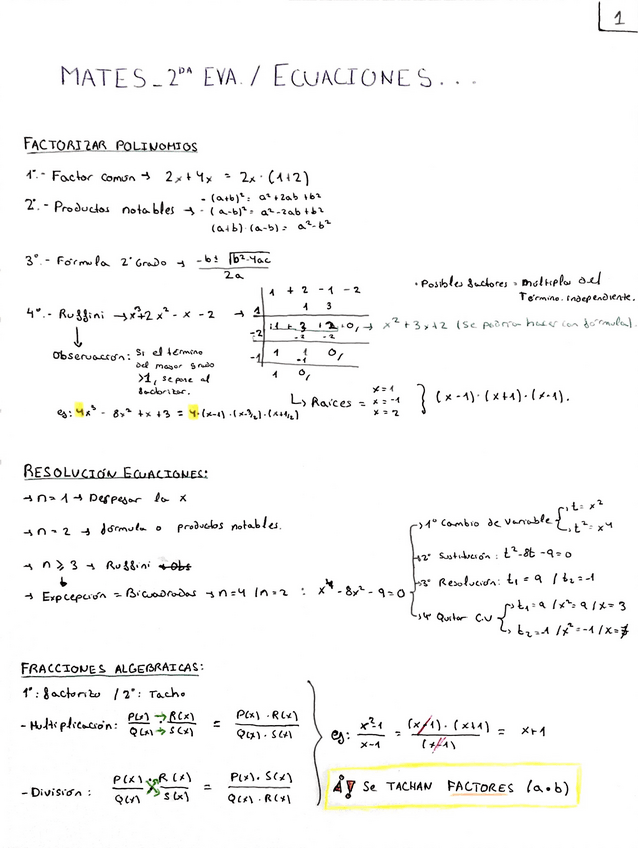 1
MATES_2DA EVA./ ECUACIONES...
FACTORIZAR POLINOMIOS
1º.- Factor común → 2x+4x = 2x·(1+2)
2º.- Productos notables → - (a+b)² = a²+2ab+b²
- (a-b)² = a²-2ab+b²
(a+b)·(a-b) = a²-b²
3º.- Fórmula 2º Grado → -b± √b²-4ac / 2a
· Posibles factores = múltiplos del
Término. independiente.
4º.- Ruffini → x³+2x²-x-2 →
1 +2 -1 -2
1 1 3
1 +3 +2 0, → x²+3x+2 (Se podría hacer con fórmula).
-2 -2 -2
1 1 0,
-1 -1
1 0,
Observación: Si el término
del mayor grado
>1, se pone al
factorizar.
eg: 4x³ - 8x² + x + 3 = 4·(x-1)·(x-3/2)·(x+1/2)
↳ Raíces = x=1
x=-1
x=2
} (x-1)·(x+1)·(x-1).
RESOLUCIÓN ECUACIONES:
→ n=1 → Despejar la x
→ n=2 → fórmula o productos notables.
→ n≥3 → Ruffini + Obs
→ Expcepción = Bicuadradas → n=4/n=2 : x⁴-8x²-9=0
→1º Cambio de variable { t=x²
t²=x⁴
→2º Sustitución: t²-8t-9=0
→3º Resolución: t₁=9 / t₂=-1
→4º Quitar C.V { t₁=9/x²=9/x=3
t₂=-1/x²=-1/x=∄
FRACCIONES ALGEBRAICAS:
1º: factorizo /2º: Tacho
- Multiplicación: P(x)/Q(x) → R(x)/S(x) = P(x)·R(x)/Q(x)·S(x)
eg: x²-1/x-1 = (x-1)·(x+1)/(x-1) = x+1
- División: P(x)/Q(x) : R(x)/S(x) = P(x)·S(x)/Q(x)·R(x)
¡! Se TACHAN FACTORES (a·b)